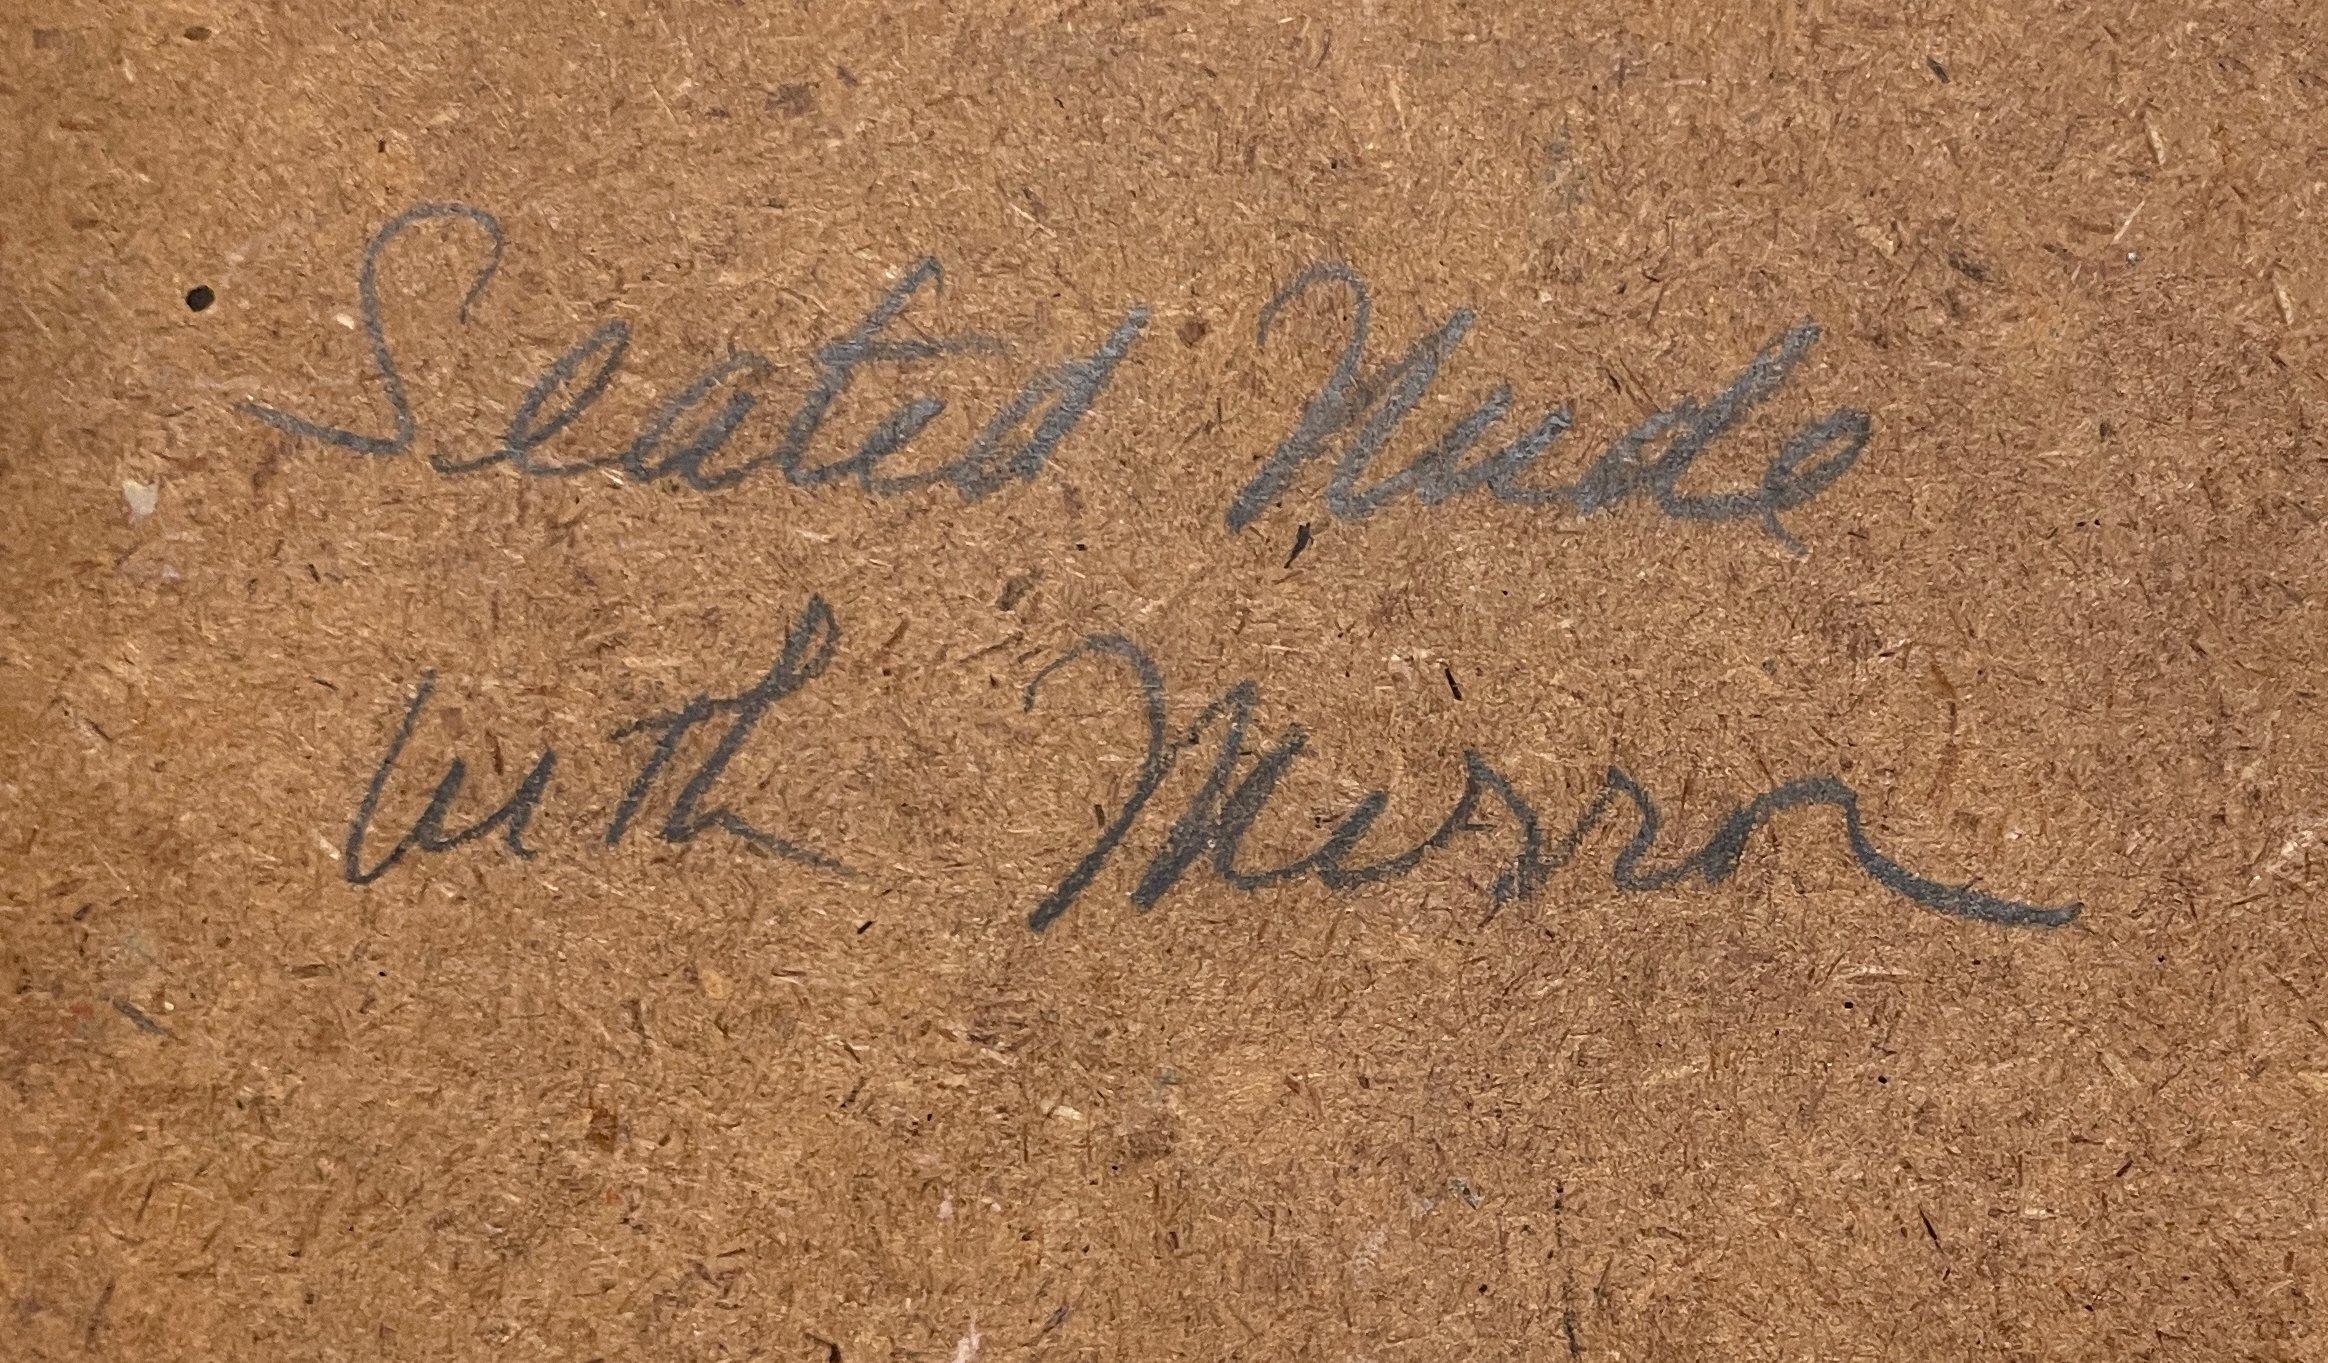 Seated Nude
with Mirror